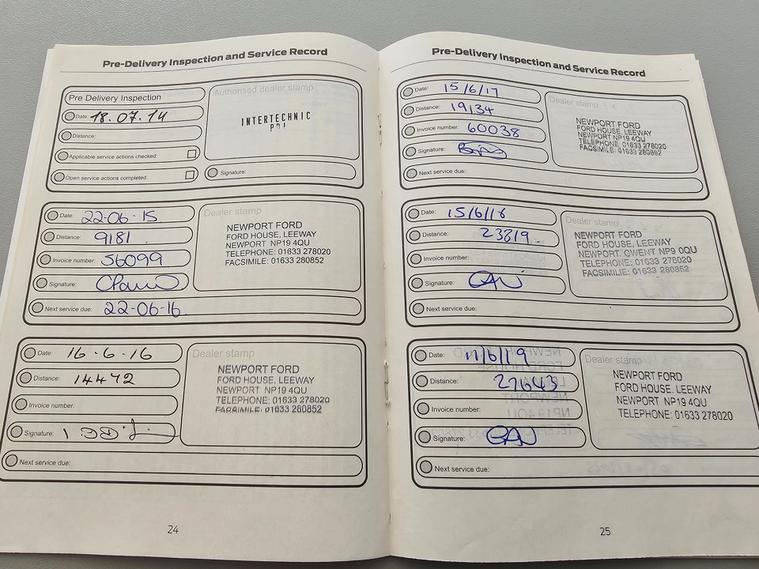 Pre-Delivery Inspection and Service Record
Pre Delivery Inspection
Date: 18.07.14
Distance:
Applicable service actions checked:
Open service actions completed:
Authorised dealer stamp
INTERTECHNIC
PDI
Signature:
Date: 22-06-15
Distance: 9181
Invoice number: 56099
Signature:
Next service due: 22-06-16
Dealer stamp
NEWPORT FORD
FORD HOUSE, LEEWAY
NEWPORT NP19 4QU
TELEPHONE: 01633 278020
FACSIMILE: 01633 280852
Date: 16-6-16
Distance: 14472
Invoice number:
Signature:
Next service due:
Dealer stamp
NEWPORT FORD
FORD HOUSE, LEEWAY
NEWPORT NP19 4QU
TELEPHONE: 01633 278020
FACSIMILE: 01633 280852
24
Pre-Delivery Inspection and Service Record
Date: 15/6/17
Distance: 19134
Invoice number: 60038
Signature:
Next service due:
Dealer stamp
NEWPORT FORD
FORD HOUSE, LEEWAY
NEWPORT NP19 4QU
TELEPHONE: 01633 278020
FACSIMILE: 01633 280852
Date: 15/6/18
Distance: 23819
Invoice number:
Signature:
Next service due:
Dealer stamp
NEWPORT FORD
FORD HOUSE, LEEWAY
NEWPORT, GWENT NP9 0QU
TELEPHONE: 01633 278020
FACSIMILE: 01633 280852
Date: 11/6/19
Distance: 27643
Invoice number:
Signature:
Next service due:
Dealer stamp
NEWPORT FORD
FORD HOUSE, LEEWAY
NEWPORT NP19 4QU
TELEPHONE: 01633 278020
25